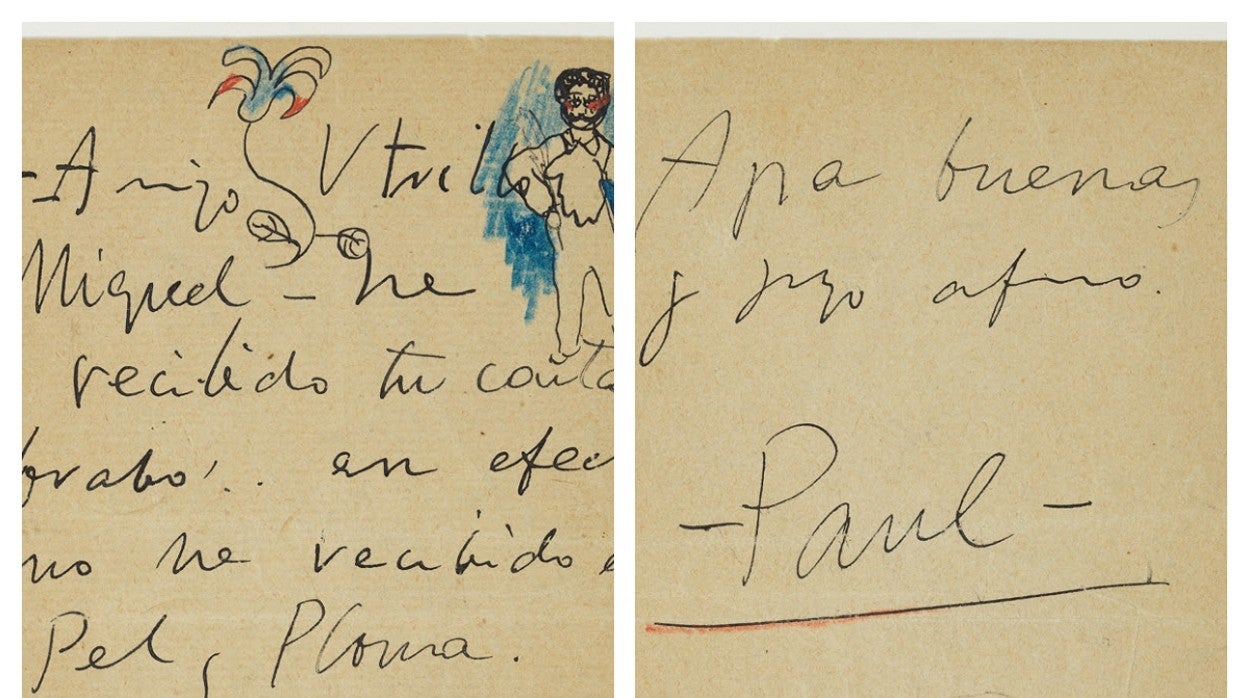 -Amigo Utrillo
Miquel - he
recibido tu carta
brabo! . en efec
no he recibido e
Pel y Ploma.
Apa buenas
y
afmo.
-Paul-